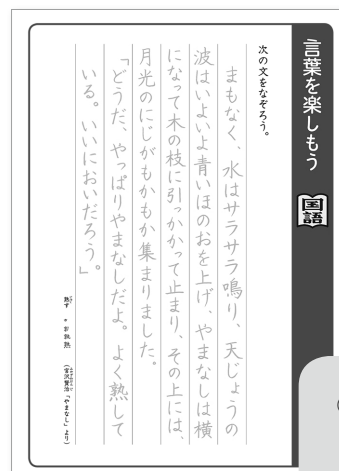 言葉を楽しもう
国語
次の文をなぞろう。
まもなく、水はサラサラ鳴り、天じょうの
波はいよいよ青いほのおを上げ、やまなしは横
になって木の枝に引っかかって止まり、その上には、
月光のにじがもかもか集まりました。
「どうだ、やっぱりやまなしだよ。よく熟して
いる。いいにおいだろう。」
(宮沢賢治「やまなし」より)